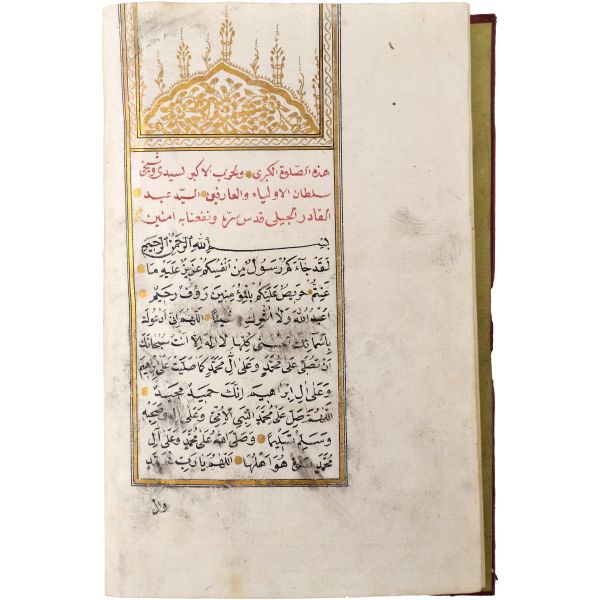 هذه الصلوة الكبرى والحزب الاكبر لسيدى وشيخى
سلطان الاولياء والعارفين السيد عبد
القادر الجيلى قدس سره ونفعنا به امين
بسم الله الرحمن الرحيم
لقد جاءكم رسول من انفسكم عزيز عليه ما
عنتم حريص عليكم بالمؤمنين رؤف رحيم
اعبد الله ولا اشرك به شيئا اللهم انى ادعوك
باسمائك الحسنى كلها لا اله الا انت سبحانك
ان تصلى على محمد وعلى ال محمد كما صليت على ابراهيم
وعلى ال ابراهيم انك حميد مجيد
اللهم صل على محمد النبى الامى وعلى اله وصحبه
وسلم تسليما وصلى الله على محمد وعلى آل
محمد صلوة هو اهلها اللهم يا رب
وال